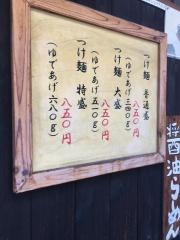 つけ麺 普通盛
八五〇円
(ゆであげ三四〇g)
つけ麺 大盛
八五〇円
(ゆであげ五一〇g)
つけ麺 特盛
八五〇円
(ゆであげ六八〇g)
醤油らめん